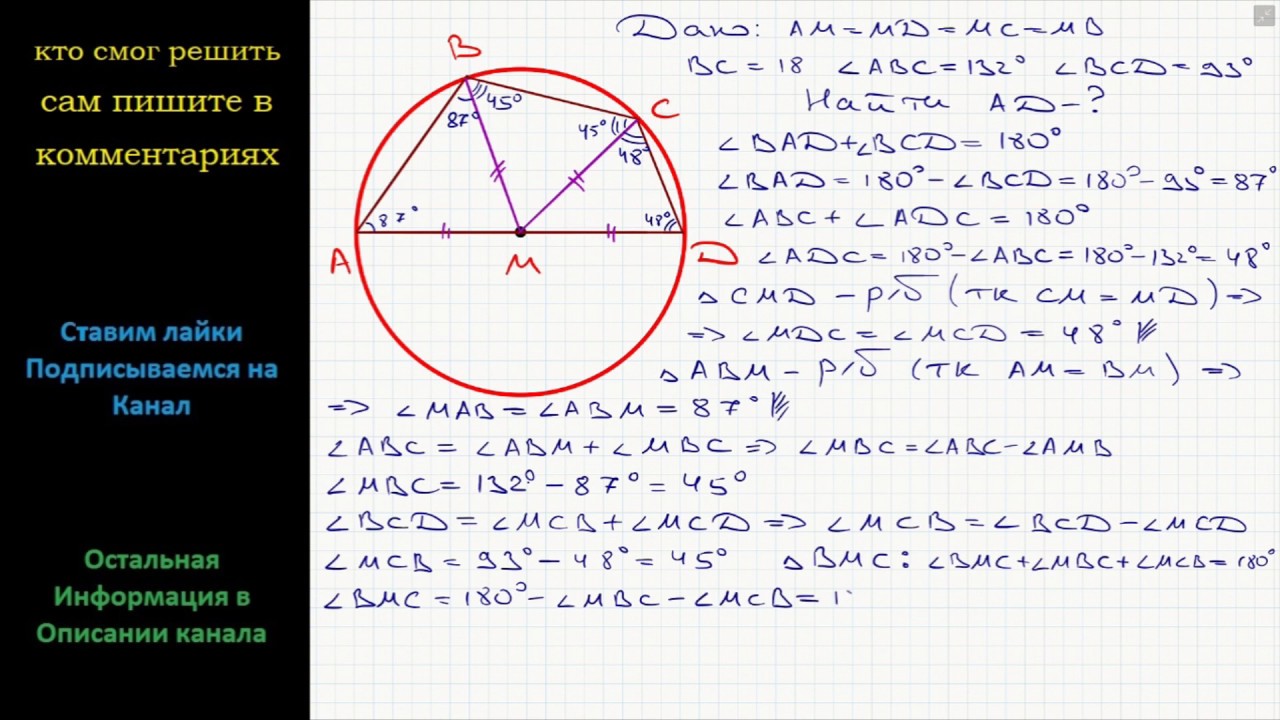 кто смог решить
сам пишите в
комментариях
Ставим лайки
Подписываемся на
Канал
Остальная
Информация в
Описании канала
B
C
A
M
D
45°
87°
45°
48°
87°
48°
Дано: AM = MD = MC = MB
BC = 18 ∠ABC = 132° ∠BCD = 93°
Найти AD - ?
∠BAD + ∠BCD = 180°
∠BAD = 180° - ∠BCD = 180° - 93° = 87°
∠ABC + ∠ADC = 180°
∠ADC = 180° - ∠ABC = 180° - 132° = 48°
△CMD - р/б (тк CM = MD) =>
=> ∠MDC = ∠MCD = 48°
△ABM - р/б (тк AM = BM) =>
=> ∠MAB = ∠ABM = 87°
∠ABC = ∠ABM + ∠MBC => ∠MBC = ∠ABC - ∠AMB
∠MBC = 132° - 87° = 45°
∠BCD = ∠MCB + ∠MCD => ∠MCB = ∠BCD - ∠MCD
∠MCB = 93° - 48° = 45° △BMC: ∠BMC + ∠MBC + ∠MCB = 180°
∠BMC = 180° - ∠MBC - ∠MCB = 1